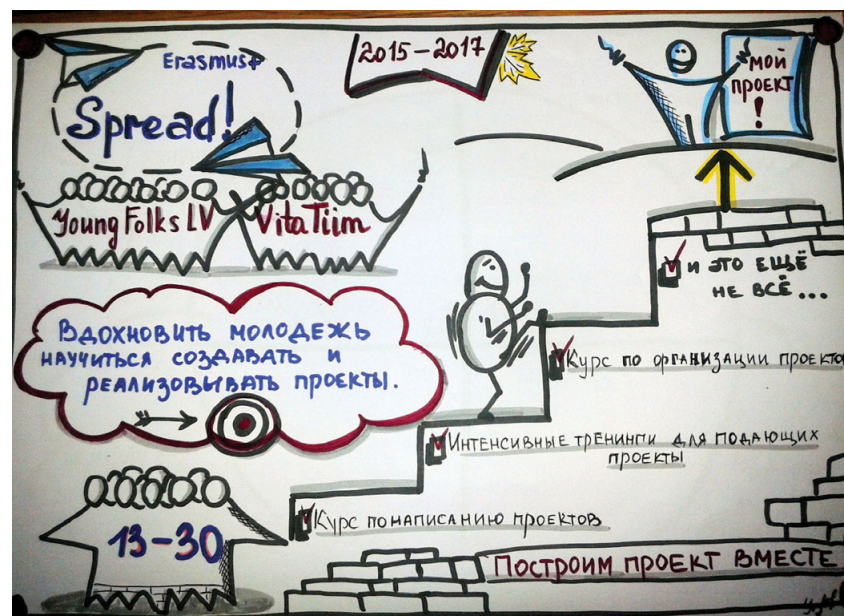 Erasmus+
Spread!
2015-2017
мой
проект
!
Young Folks LV
Vita Tiim
и это ещё
не всё...
Вдохновить молодежь
научиться создавать и
реализовывать проекты.
Курс по организации проекто
Интенсивные тренинги для подающих
проекты
Курс по написанию проектов
13-30
Построим проект вместе